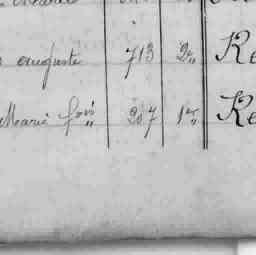 auguste 713 2e Re
Marie fois 207 1er Re